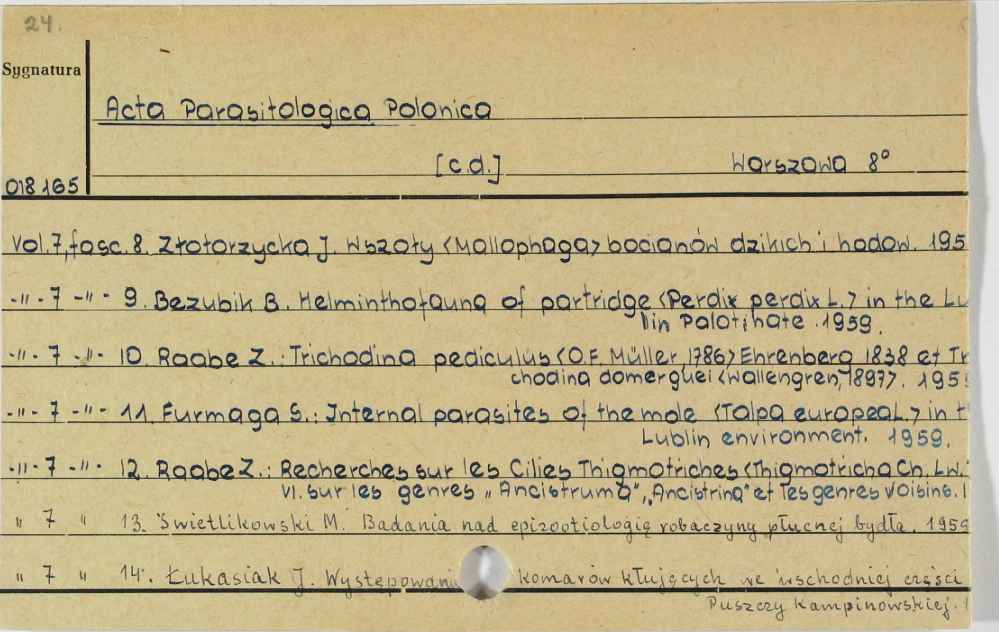 24.
Sygnatura
Acta Parasitologica Polonica
[c.d.] Warszawa 8°
018165
Vol.7, fasc. 8. Złotorzycka J. Wszoły <Mallophaga> bocianów dzikich i hodow. 195
-"- 7 -"- 9. Bezubik B. Helminthofauna of partridge <Perdix perdix L.> in the Lu
lin Palatinate. 1959.
-"- 7 -"- 10. Raabe Z.: Trichodina pediculus <O.F. Müller, 1786> Ehrenberg 1838 et Tr
chodina domerguei <Wallengren, 1897>. 195
-"- 7 -"- 11. Furmaga S.: Internal parasites of the mole <Talpa europea L.> in t
Lublin environment. 1959.
-"- 7 -"- 12. Raabe Z.: Recherches sur les Cilies Thigmotriches <Thigmotricha Ch. Lw.
VI. sur les genres „Ancistruma", „Ancistrina" et les genres voisins. 1
" 7 " 13. Świetlikowski M. Badania nad epizootiologią robaczycy płucnej bydła. 1959
" 7 " 14. Łukasiak J. Występowan komarów kłujących we wschodniej części
Puszczy Kampinowskiej. 1